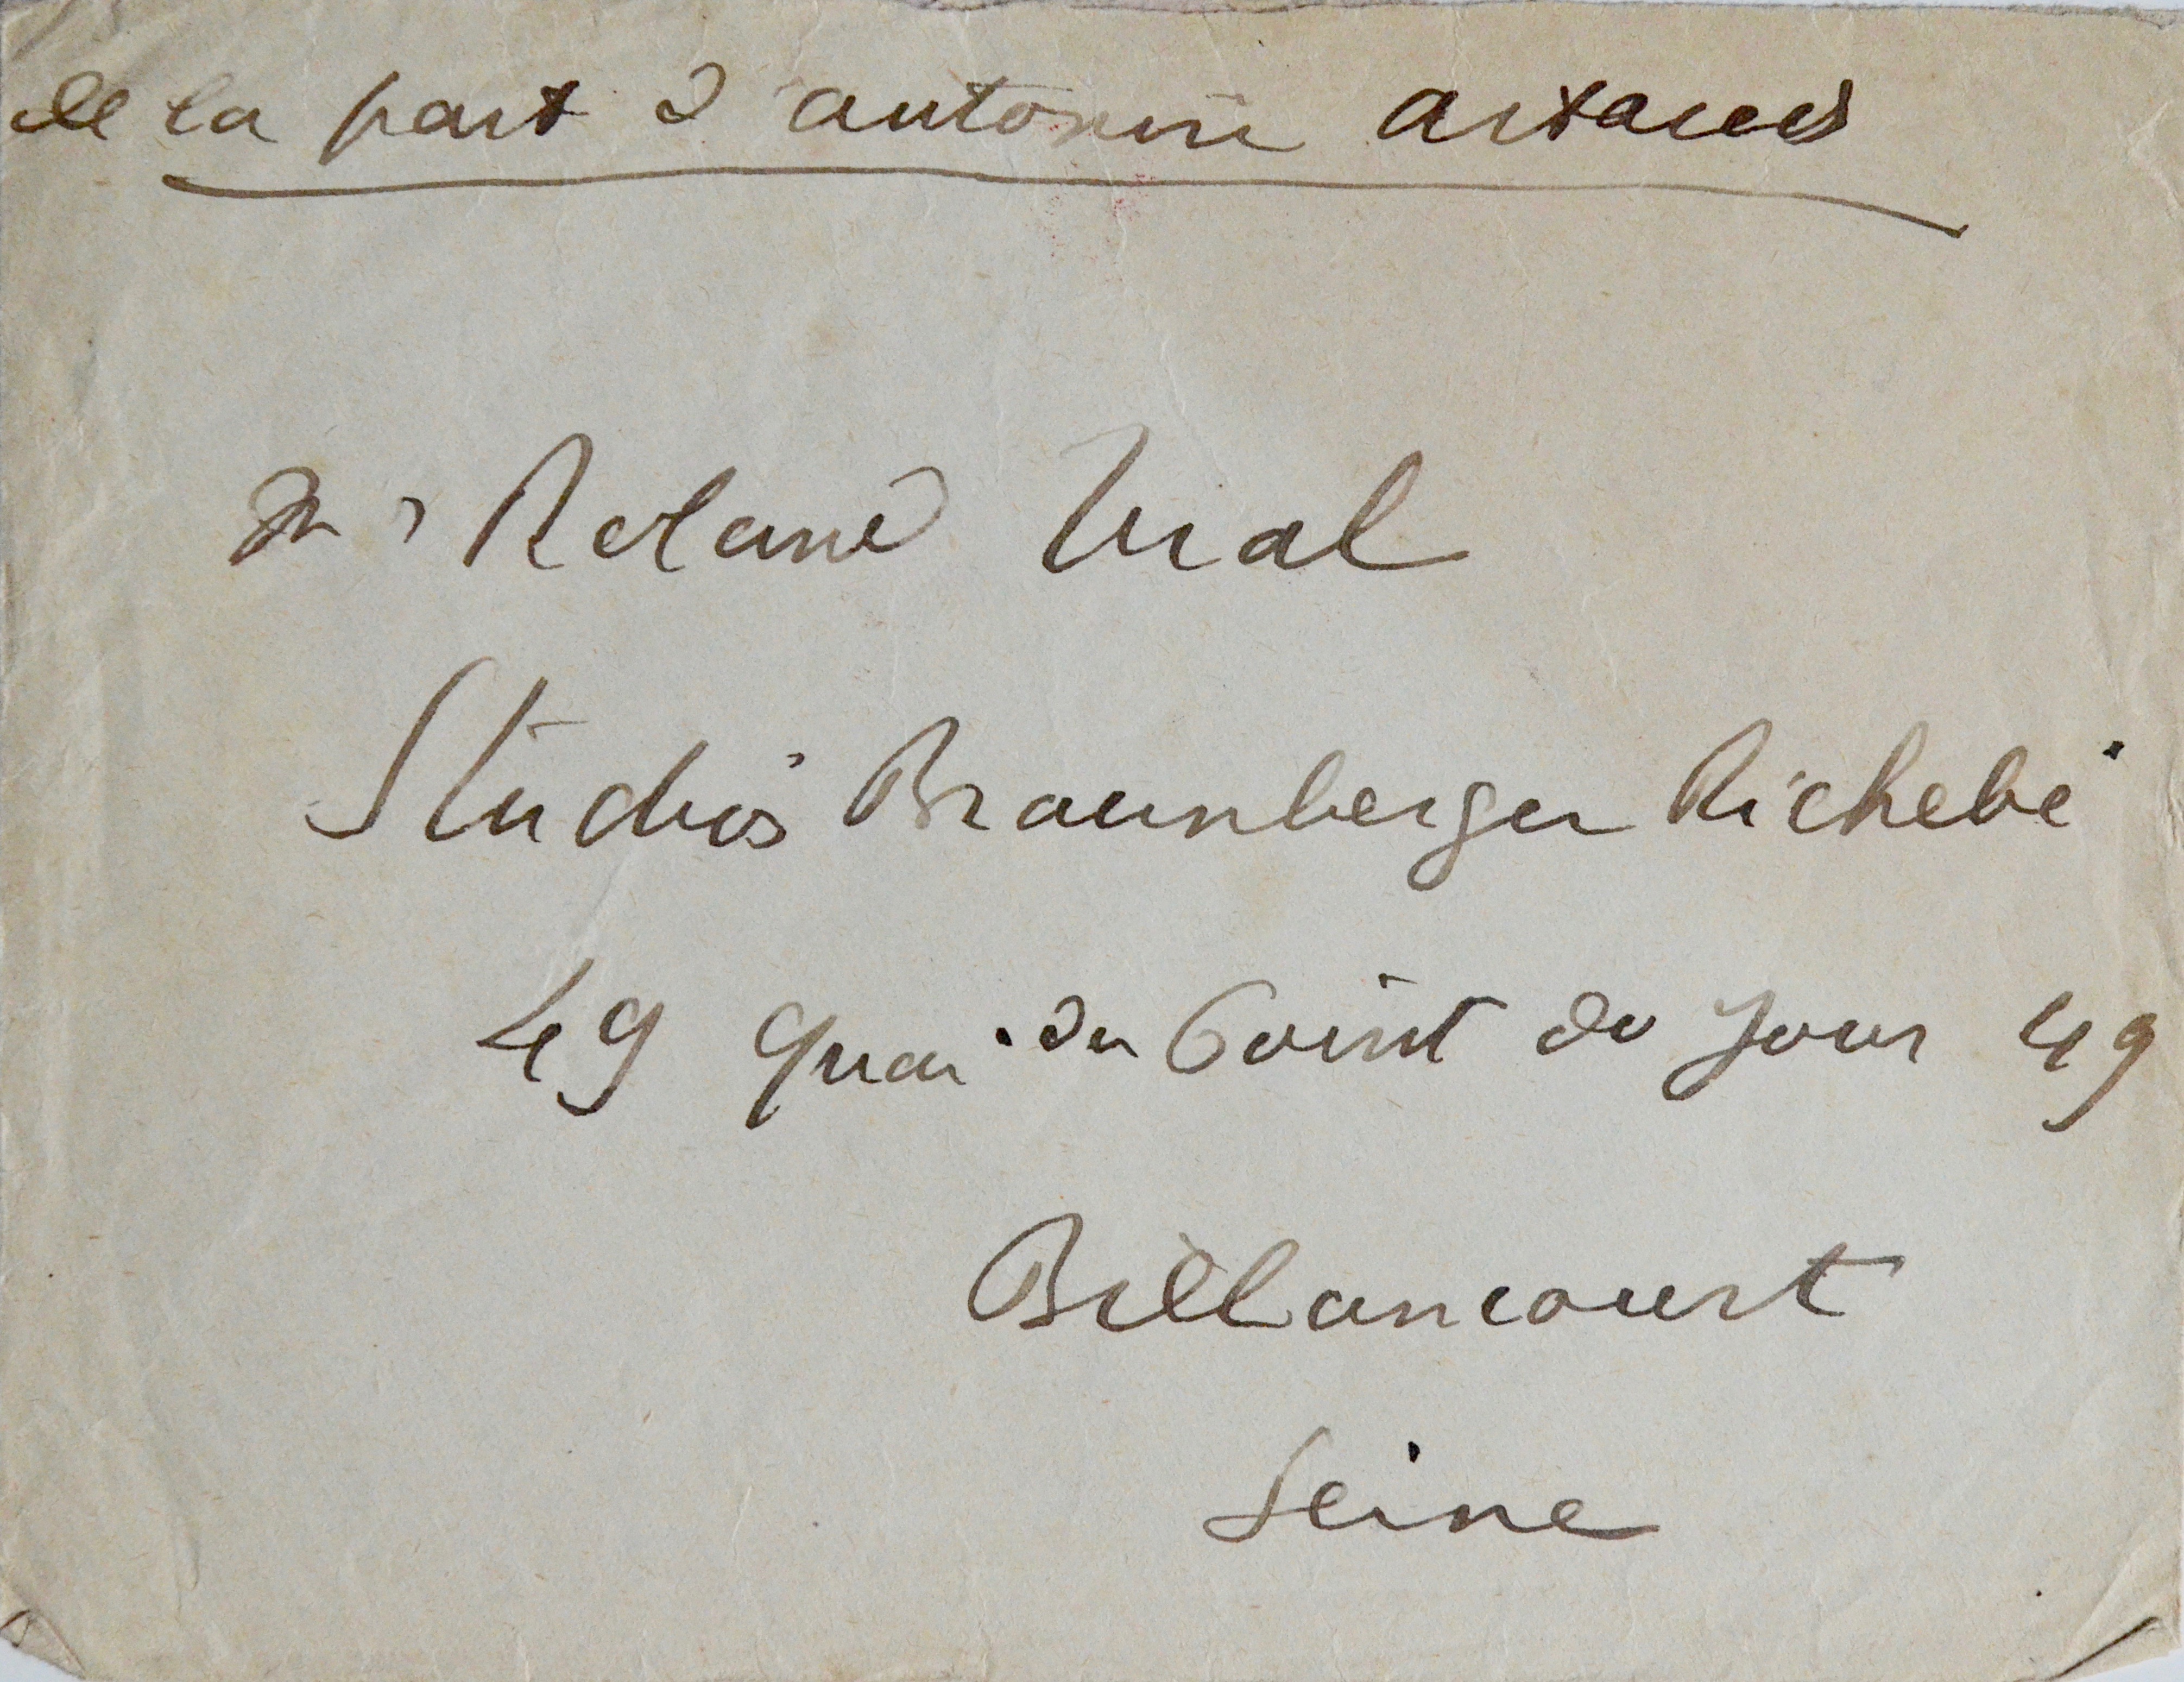 de la part d'antonin artaud
Mr Roland Vial
Studios Braunberger Richebé
49 Quai du Point du Jour 49
Billancourt
Seine